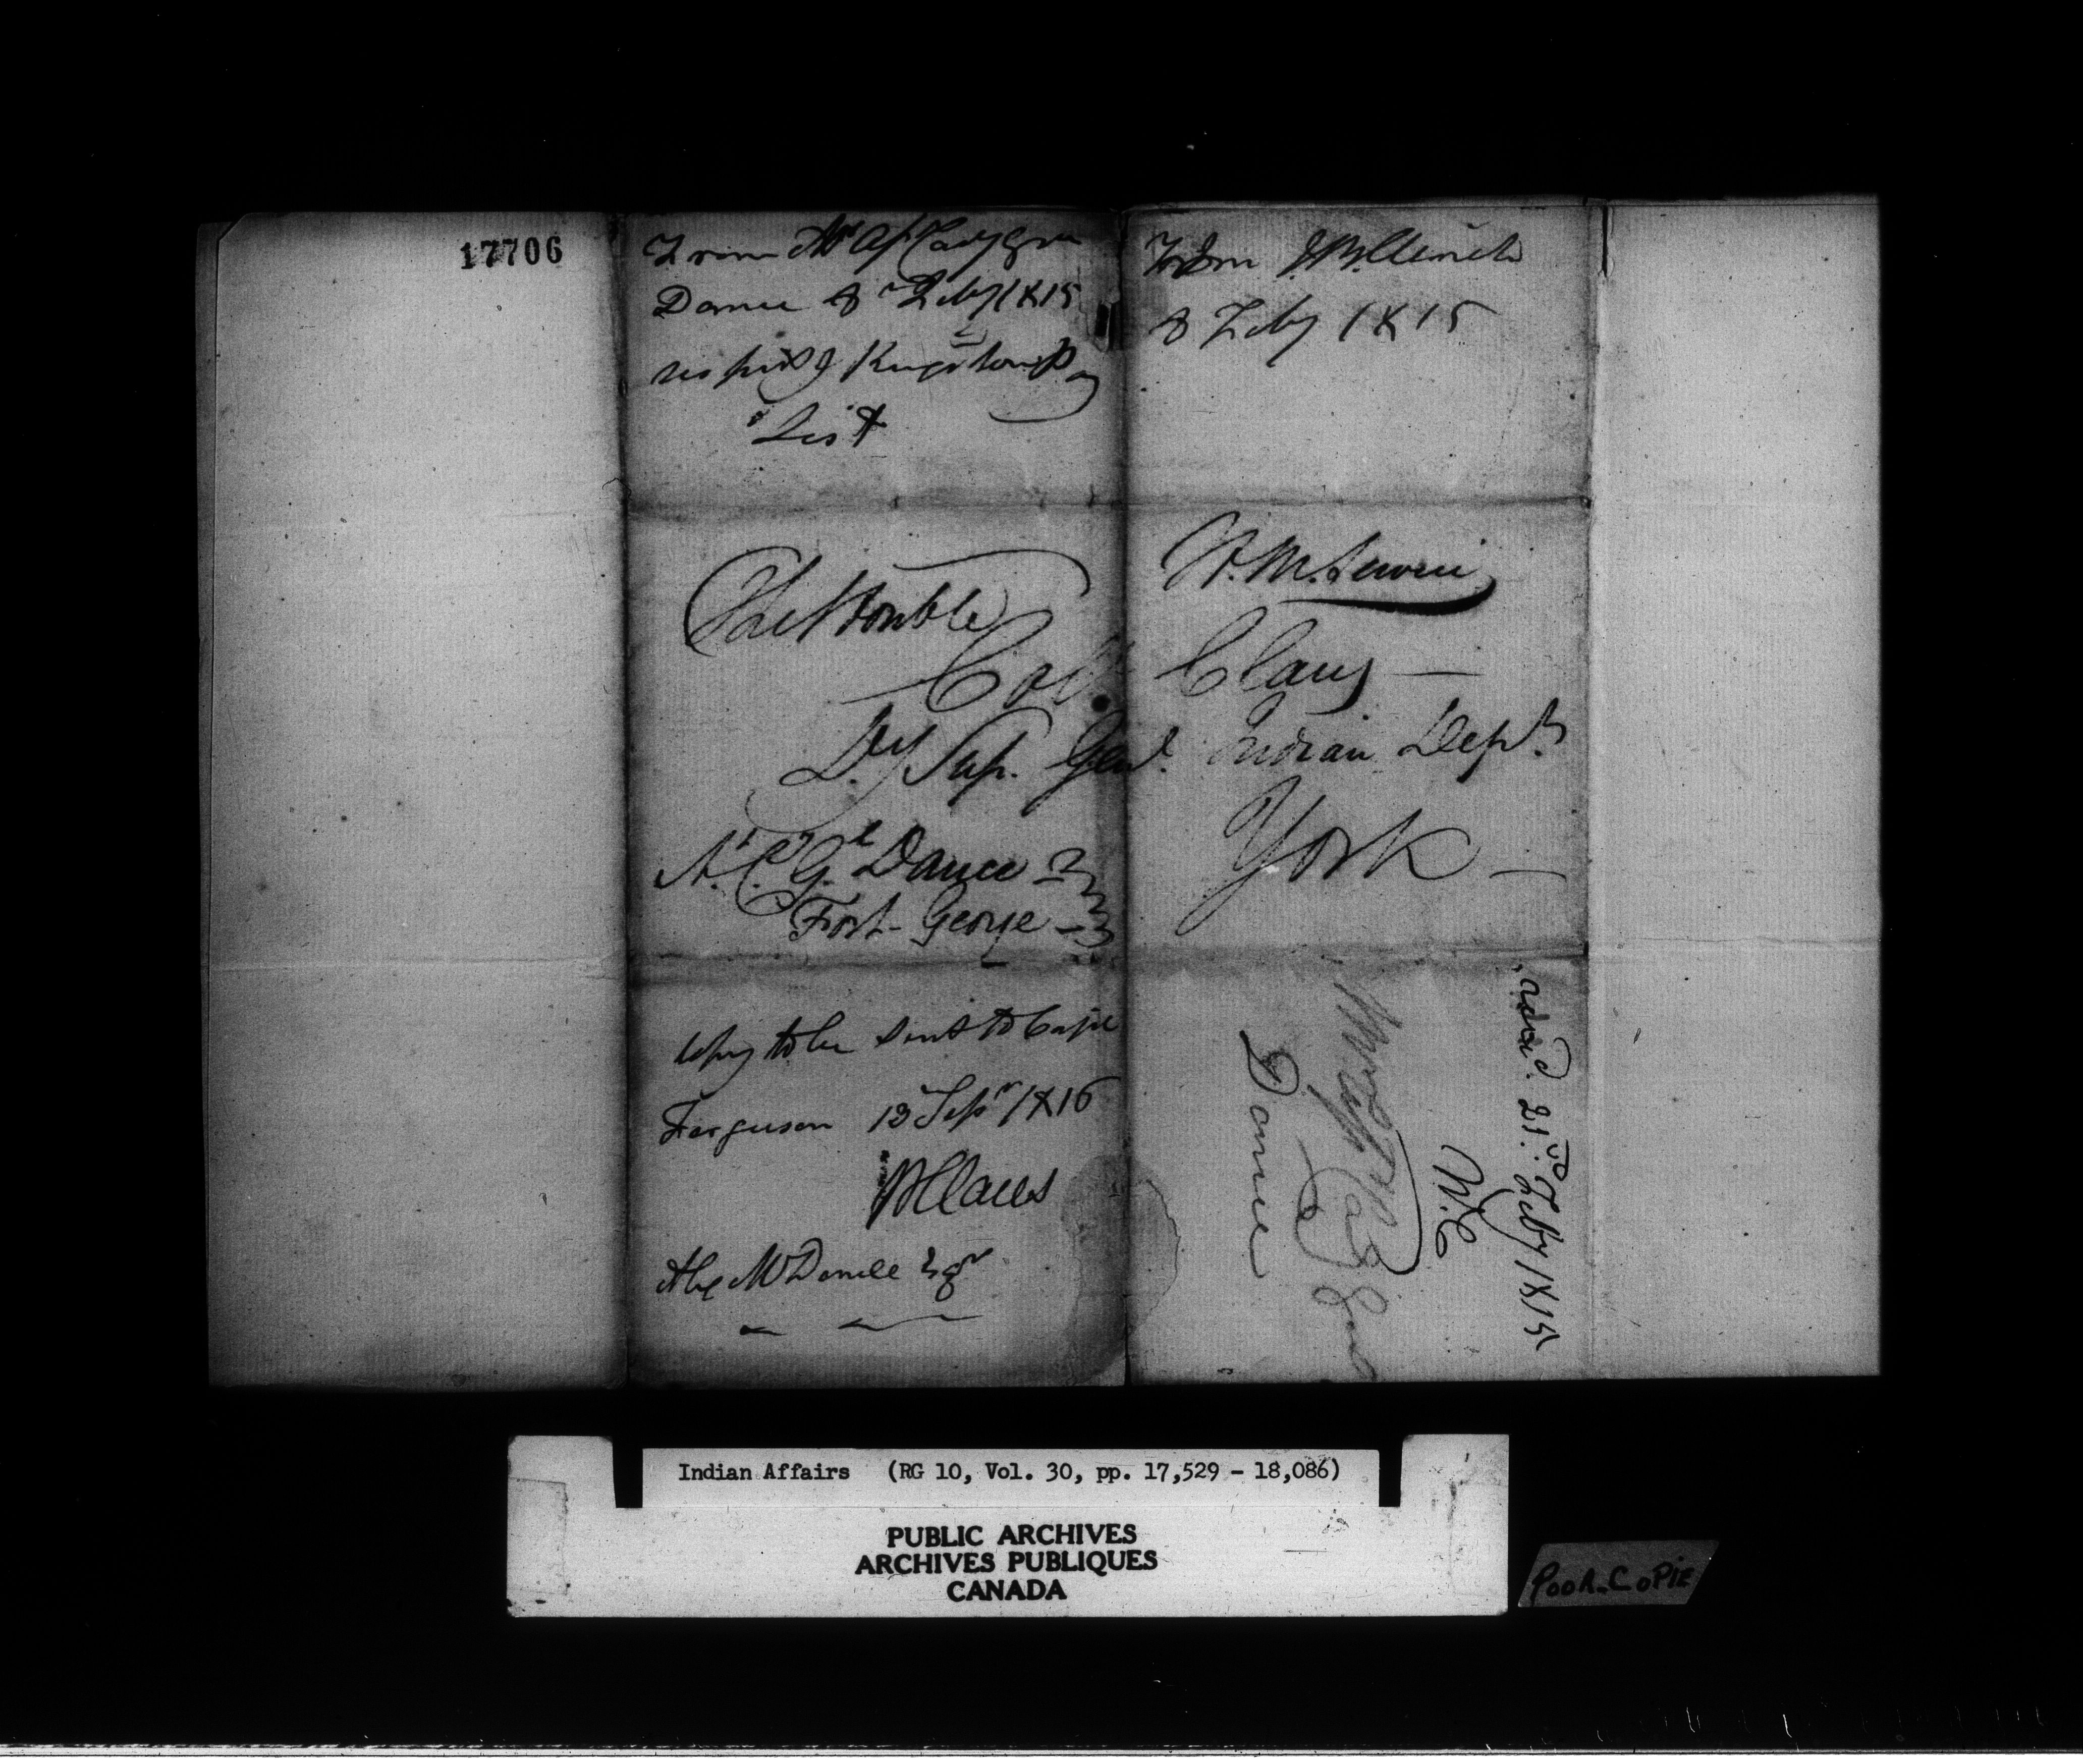 17706
From Mr Ast Comy Gen
Dance 8 Feby 1815
respectg Kingston Pay
List
From J B Clench
8 Feby 1815
H. M. Service
The Honble
Col. Claus —
Dy Sup. Genl. Indian Dept.
York —
A. C. Gl. Dance
Fort George
Copy to be sent to Capt
Ferguson 13 Sepr 1816
W Claus
Alex McDonell Esqr
Dance
W. C
21st Feby 1815
Indian Affairs (RG 10, Vol. 30, pp. 17,529 - 18,086)
PUBLIC ARCHIVES
ARCHIVES PUBLIQUES
CANADA
POOR COPIE